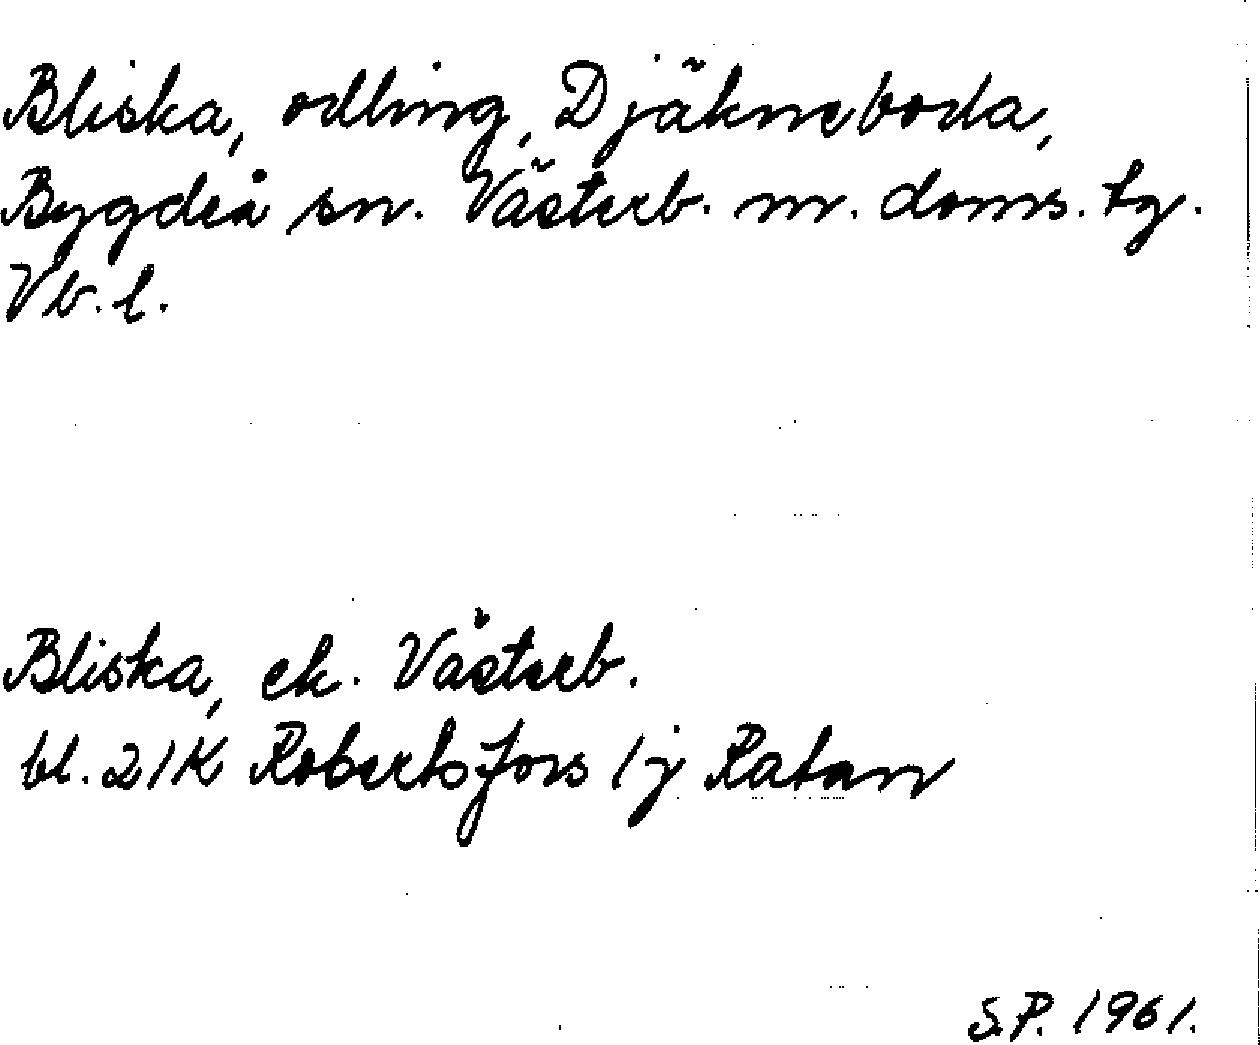 Bliska, odling, Djäkneboda,
Bygdeå sn. Västerb. m. doms. tg.
Vb. l.
Bliska, ek. Västerb.
bl. 21K Robertsfors 1j Ratan
S.P. 1961.